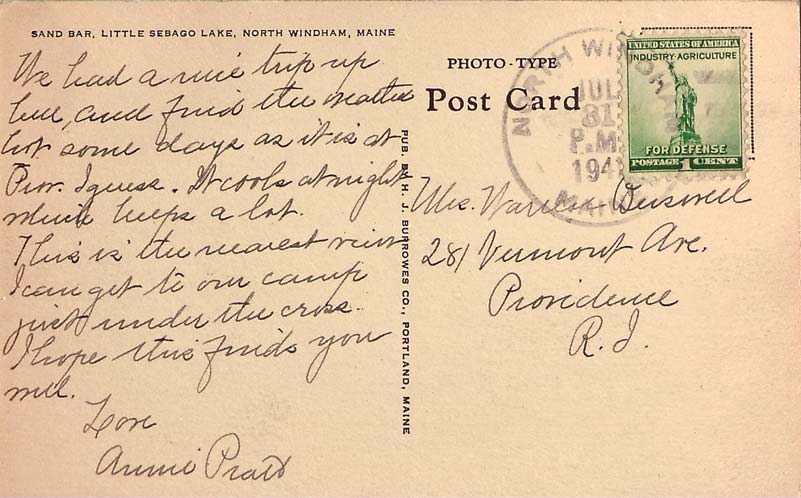 SAND BAR, LITTLE SEBAGO LAKE, NORTH WINDHAM, MAINE
We had a nice trip up
here, and find the weather
hot some days as it is at
Prov. I guess. It cools at night
which helps a lot.
This is the nearest view
I can get to our camp
just under the cross.
I hope this finds you
well.
Love
Annie Pratt
PUB. BY H. J. BURROWES CO., PORTLAND, MAINE
PHOTO-TYPE
Post Card
NORTH WINDHAM
JUL
31
P.M.
194
MAINE
UNITED STATES OF AMERICA
INDUSTRY·AGRICULTURE
FOR DEFENSE
POSTAGE 1 CENT
Mrs. Warren
281 Vermont Ave.
Providence
R.I.